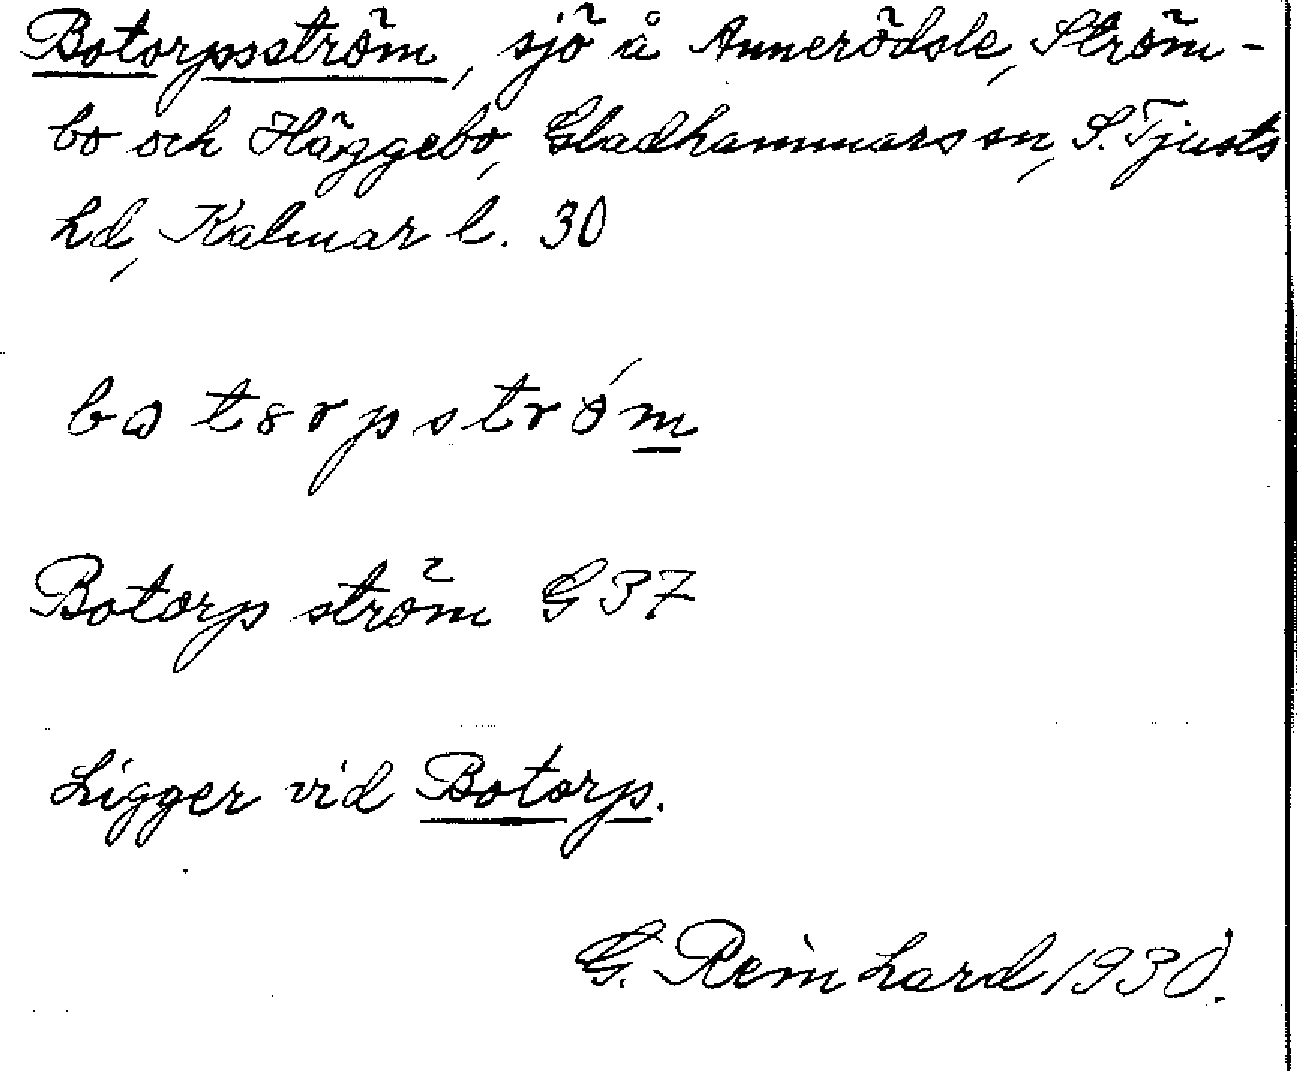 Botorpsström, sjö å Annerödsle, Ström-
bo och Häggebo, Gladhammars sn, S. Tjusts
hd, Kalmar l. 30
botorpström
Botorp ström G 37
Ligger vid Botorp.
G. Reinhard 1930.